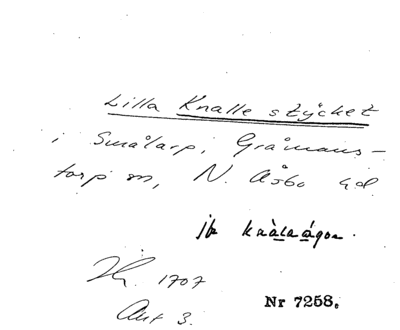 Lilla Knalle stycket
i Smålarp, Gråmans-
torp sn, N. Åsbo hd.
jb knàlaágor.
1707
Akt 3.
Nr 7258.